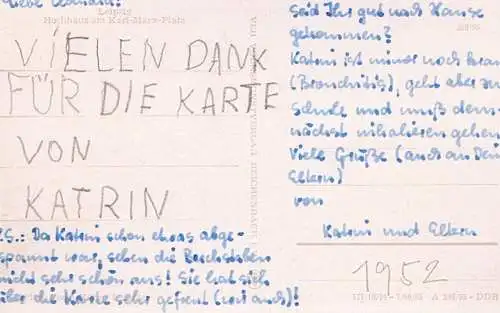 Liebe
Leipzig
Hochhaus am Karl-Marx-Platz
VIELEN DANK
FÜR DIE KARTE
VON
KATRIN
P.S.: Da Katrin schon etwas abge-
spannt war, sehen die Buchstaben
nicht sehr schön aus! Sie hat sich
über die Karte sehr gefreut (wir auch)!
Seid Ihr gut nach Hause
gekommen?
Katrin ist immer noch
(Bronchitis), geht aber zur
Schule und muß dem-
nächst inhalieren gehen
Viele Grüße (auch an Dein
Eltern)
von
Katrin und Eltern
1952
DDR